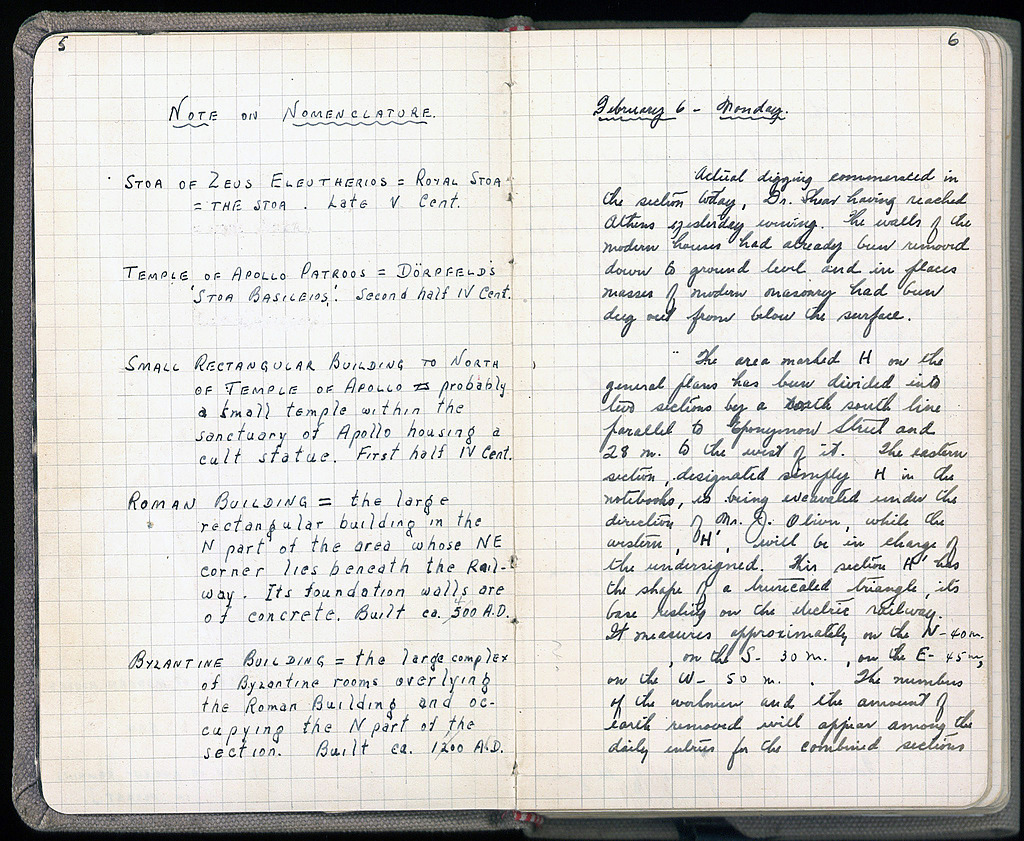 5
NOTE ON NOMENCLATURE.
STOA OF ZEUS ELEUTHERIOS = ROYAL STOA
= THE STOA. Late V Cent.
TEMPLE OF APOLLO PATROOS = DÖRPFELD'S
'STOA BASILEIOS'. Second half IV Cent.
SMALL RECTANGULAR BUILDING TO NORTH
OF TEMPLE OF APOLLO = probably
a small temple within the
sanctuary of Apollo housing a
cult statue. First half IV Cent.
ROMAN BUILDING = the large
rectangular building in the
N part of the area whose NE
corner lies beneath the Rail-
way. Its foundation walls are
of concrete. Built ca. 500 A.D.
BYZANTINE BUILDING = the large complex
of Byzantine rooms overlying
the Roman Building and oc-
cupying the N part of the
section. Built ca. 1200 A.D.
6
February 6 - Monday.
Actual digging commenced in
the section today, Dr. Shear having reached
Athens yesterday evening. The walls of the
modern houses had already been removed
down to ground level and in places
masses of modern masonry had been
dug out from below the surface.
The area marked H on the
general plans has been divided into
two sections by a north south line
parallel to Eponymon Street and
28 m. to the west of it. The eastern
section, designated simply H in the
notebooks, is being excavated under the
direction of Mr. J. Oliver, while the
western, H', will be in charge of
the undersigned. This section H' has
the shape of a truncated triangle, its
base resting on the electric railway.
It measures approximately on the N- 40 m.
, on the S- 30 m. , on the E- 45 m,
on the W- 50 m. . The numbers
of the workmen and the amount of
earth removed will appear among the
daily entries for the combined sections